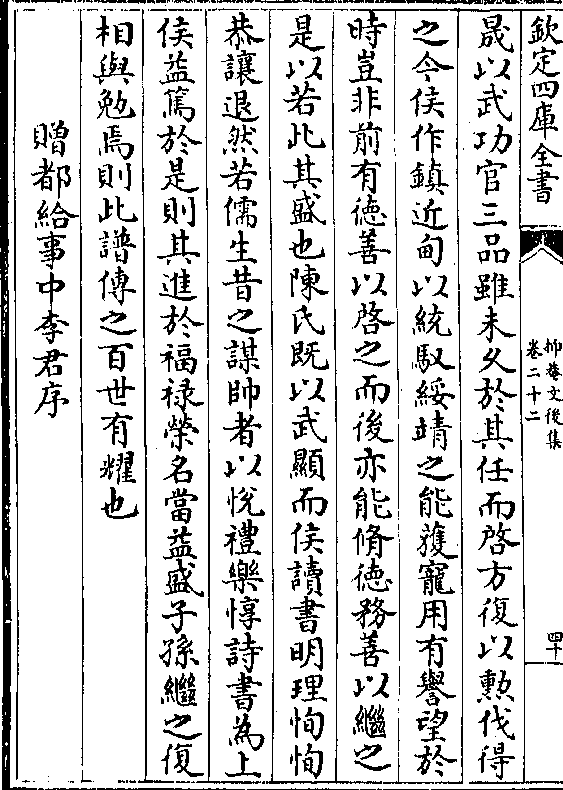 欽定四庫全書
抑菴文後集
卷二十二
四十
晟以武功官三品雖未久於其任而啓方復以勲伐得
之今侯作鎮近甸以統馭綏靖之能獲寵用有譽望於
時豈非前有徳善以啓之而後亦能脩徳務善以繼之
是以若此其盛也陳氏既以武顯而侯讀書明理恂恂
恭讓退然若儒生昔之謀帥者以恱禮樂惇詩書為上
侯益篤於是則其進於福禄榮名當益盛子孫繼之復
相與勉焉則此譜傳之百世有耀也
贈都給事中李君序